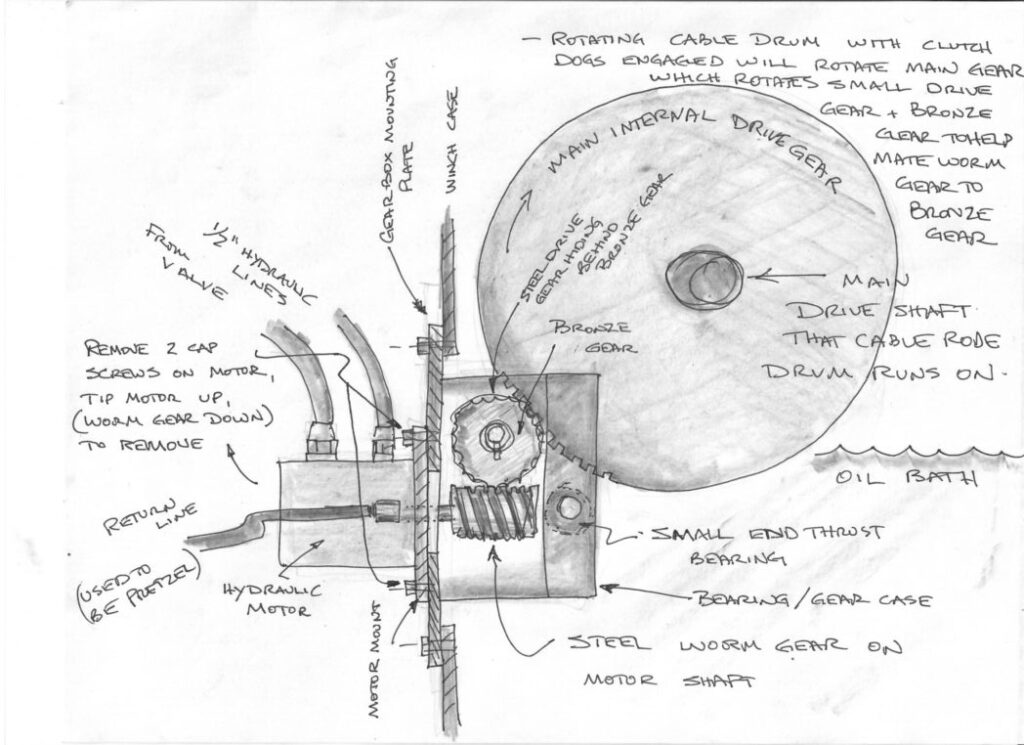 - ROTATING CABLE DRUM WITH CLUTCH
DOGS ENGAGED WILL ROTATE MAIN GEAR
WHICH ROTATES SMALL DRIVE
GEAR + BRONZE
GEAR TO HELP
MATE WORM
GEAR TO
BRONZE
GEAR
MAIN INTERNAL DRIVE GEAR
GEARBOX MOUNTING
PLATE
WINCH CASE
1/2" HYDRAULIC
LINES
FROM
VALVE
STEEL DRIVE
GEAR HIDING
BEHIND
BRONZE GEAR
BRONZE
GEAR
MAIN
DRIVE SHAFT
THAT CABLE RODE
DRUM RUNS ON.
REMOVE 2 CAP
SCREWS ON MOTOR,
TIP MOTOR UP,
(WORM GEAR DOWN)
TO REMOVE
OIL BATH
RETURN
LINE
(USED TO
BE PRETZEL)
HYDRAULIC
MOTOR
MOTOR MOUNT
SMALL END THRUST
BEARING
BEARING/GEAR CASE
STEEL WORM GEAR ON
MOTOR SHAFT